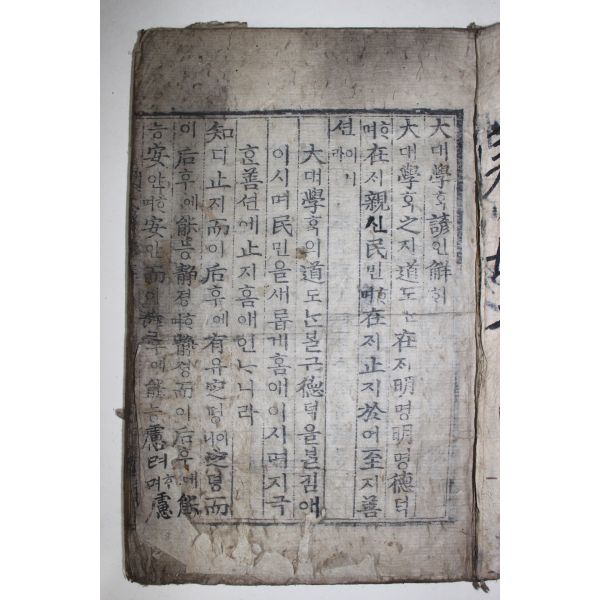 大대學ᄒᆞᆨ諺언解ᄒᆡ
大대學ᄒᆞᆨ之지道도ᄂᆞᆫ在ᄌᆡ明명明명德덕ᄒᆞ
며在ᄌᆡ親신民민ᄒᆞ며在ᄌᆡ止지於어至지善
션이니라
大대學ᄒᆞᆨ의道도ᄂᆞᆫᄇᆞᆯ근德덕을ᄇᆞᆯ킴애
이시며民민을새롭게홈애이시며지극
ᄒᆞᆫ善션애止지홈애인ᄂᆞ니라
知디止지而이后후에有유定뎡이니定뎡而
이后후에能능静졍ᄒᆞ며静졍而이后후에能
능安안ᄒᆞ며安안而이后후에能능慮려ᄒᆞ며慮